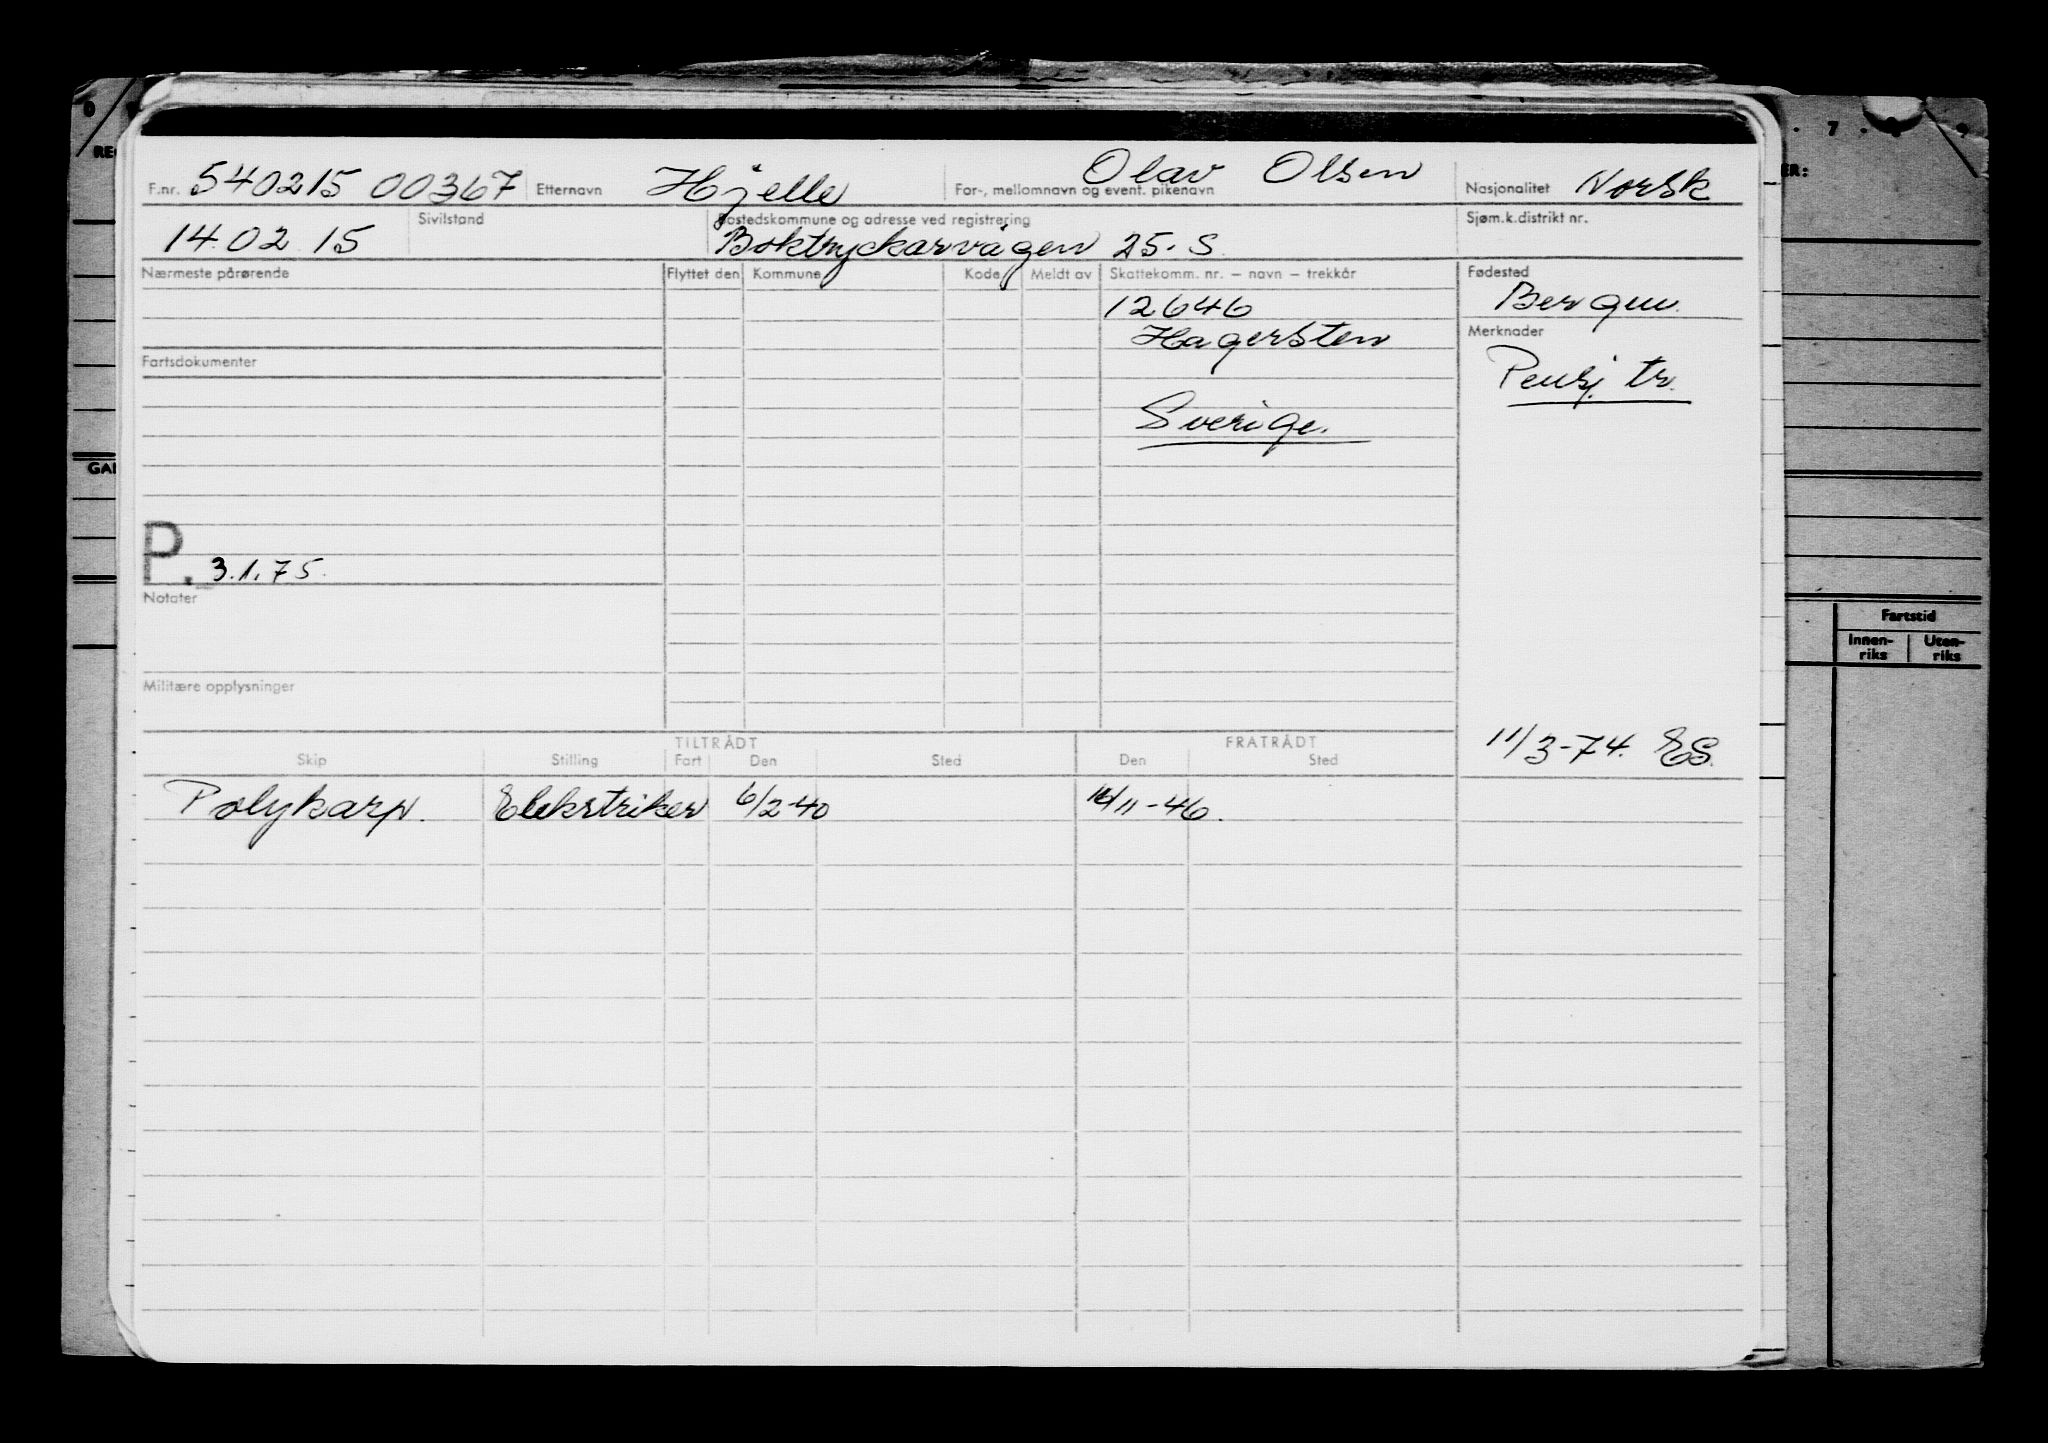 F.nr. 540215 00367 Etternavn Hjelle For-, mellomnavn og event. pikenavn Olav Olsen Nasjonalitet Norsk
14.02.15 Sivilstand Bostedskommune og adresse ved registrering Boktryckarvägen 25. S. Sjøm.k.distrikt nr.
Nærmeste pårørende Flyttet den Kommune Kode Meldt av Skattekomm. nr. — navn — trekkår Fødested
12646 Bergen.
Hagersten Merknader
Fartsdokumenter Pensj. tr.
Sverige.
P. 3.1.75.
Notater
Militære opplysninger
11/3-74. ES.
TILTRÅDT FRATRÅDT
Skip Stilling Fart Den Sted Den Sted
Polykarp. Elekstriker 6/2-40 16/11-46.
GA
ER:
7
Fartstid
Innen-riks Uten-riks